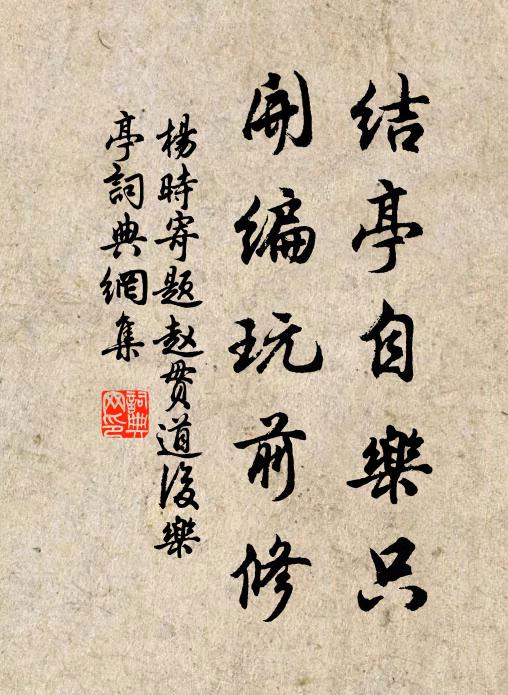 结亭自樂只
開编玩前修
楊時寄题赵贯道後樂
亭詞典網集
詞典网印